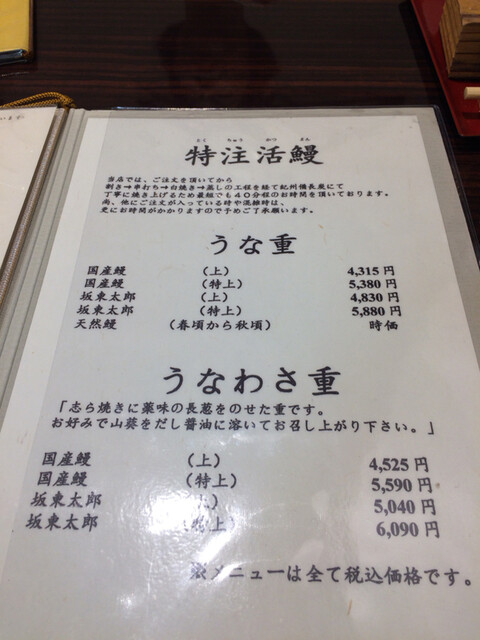 とく ちゅう かつ まん
特注活鰻
当店では、ご注文を頂いてから
割き→串打ち→白焼き→蒸しの工程を経て紀州備長炭にて
丁寧に焼き上げるため最短でも40分程のお時間を頂いております。
尚、他にご注文が入っている時や混雑時は、
更にお時間がかかりますので予めご了承願います。
うな重
国産鰻 (上) 4,315円
国産鰻 (特上) 5,380円
坂東太郎 (上) 4,830円
坂東太郎 (特上) 5,880円
天然鰻 (春頃から秋頃) 時価
うなわさ重
「志ら焼きに薬味の長葱をのせた重です。
お好みで山葵をだし醤油に溶いてお召し上がり下さい。」
国産鰻 (上) 4,525円
国産鰻 (特上) 5,590円
坂東太郎 上) 5,040円
坂東太郎 上) 6,090円
※メニューは全て税込価格です。